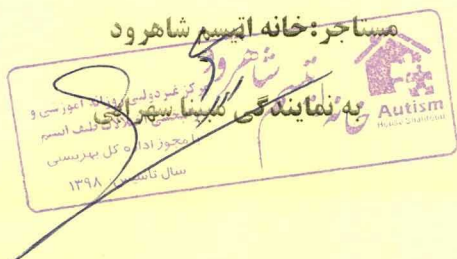 مستاجر:خانه اتیسم شاهرود
به نمایندگی مبینا سهرابی
خانه اتیسم شاهرود
Autism
House Shahrood
مرکز غیردولتی روزانه آموزشی و
طیف اتیسم
با مجوز اداره کل بهزیستی
سال تاسیس: ۱۳۹۸